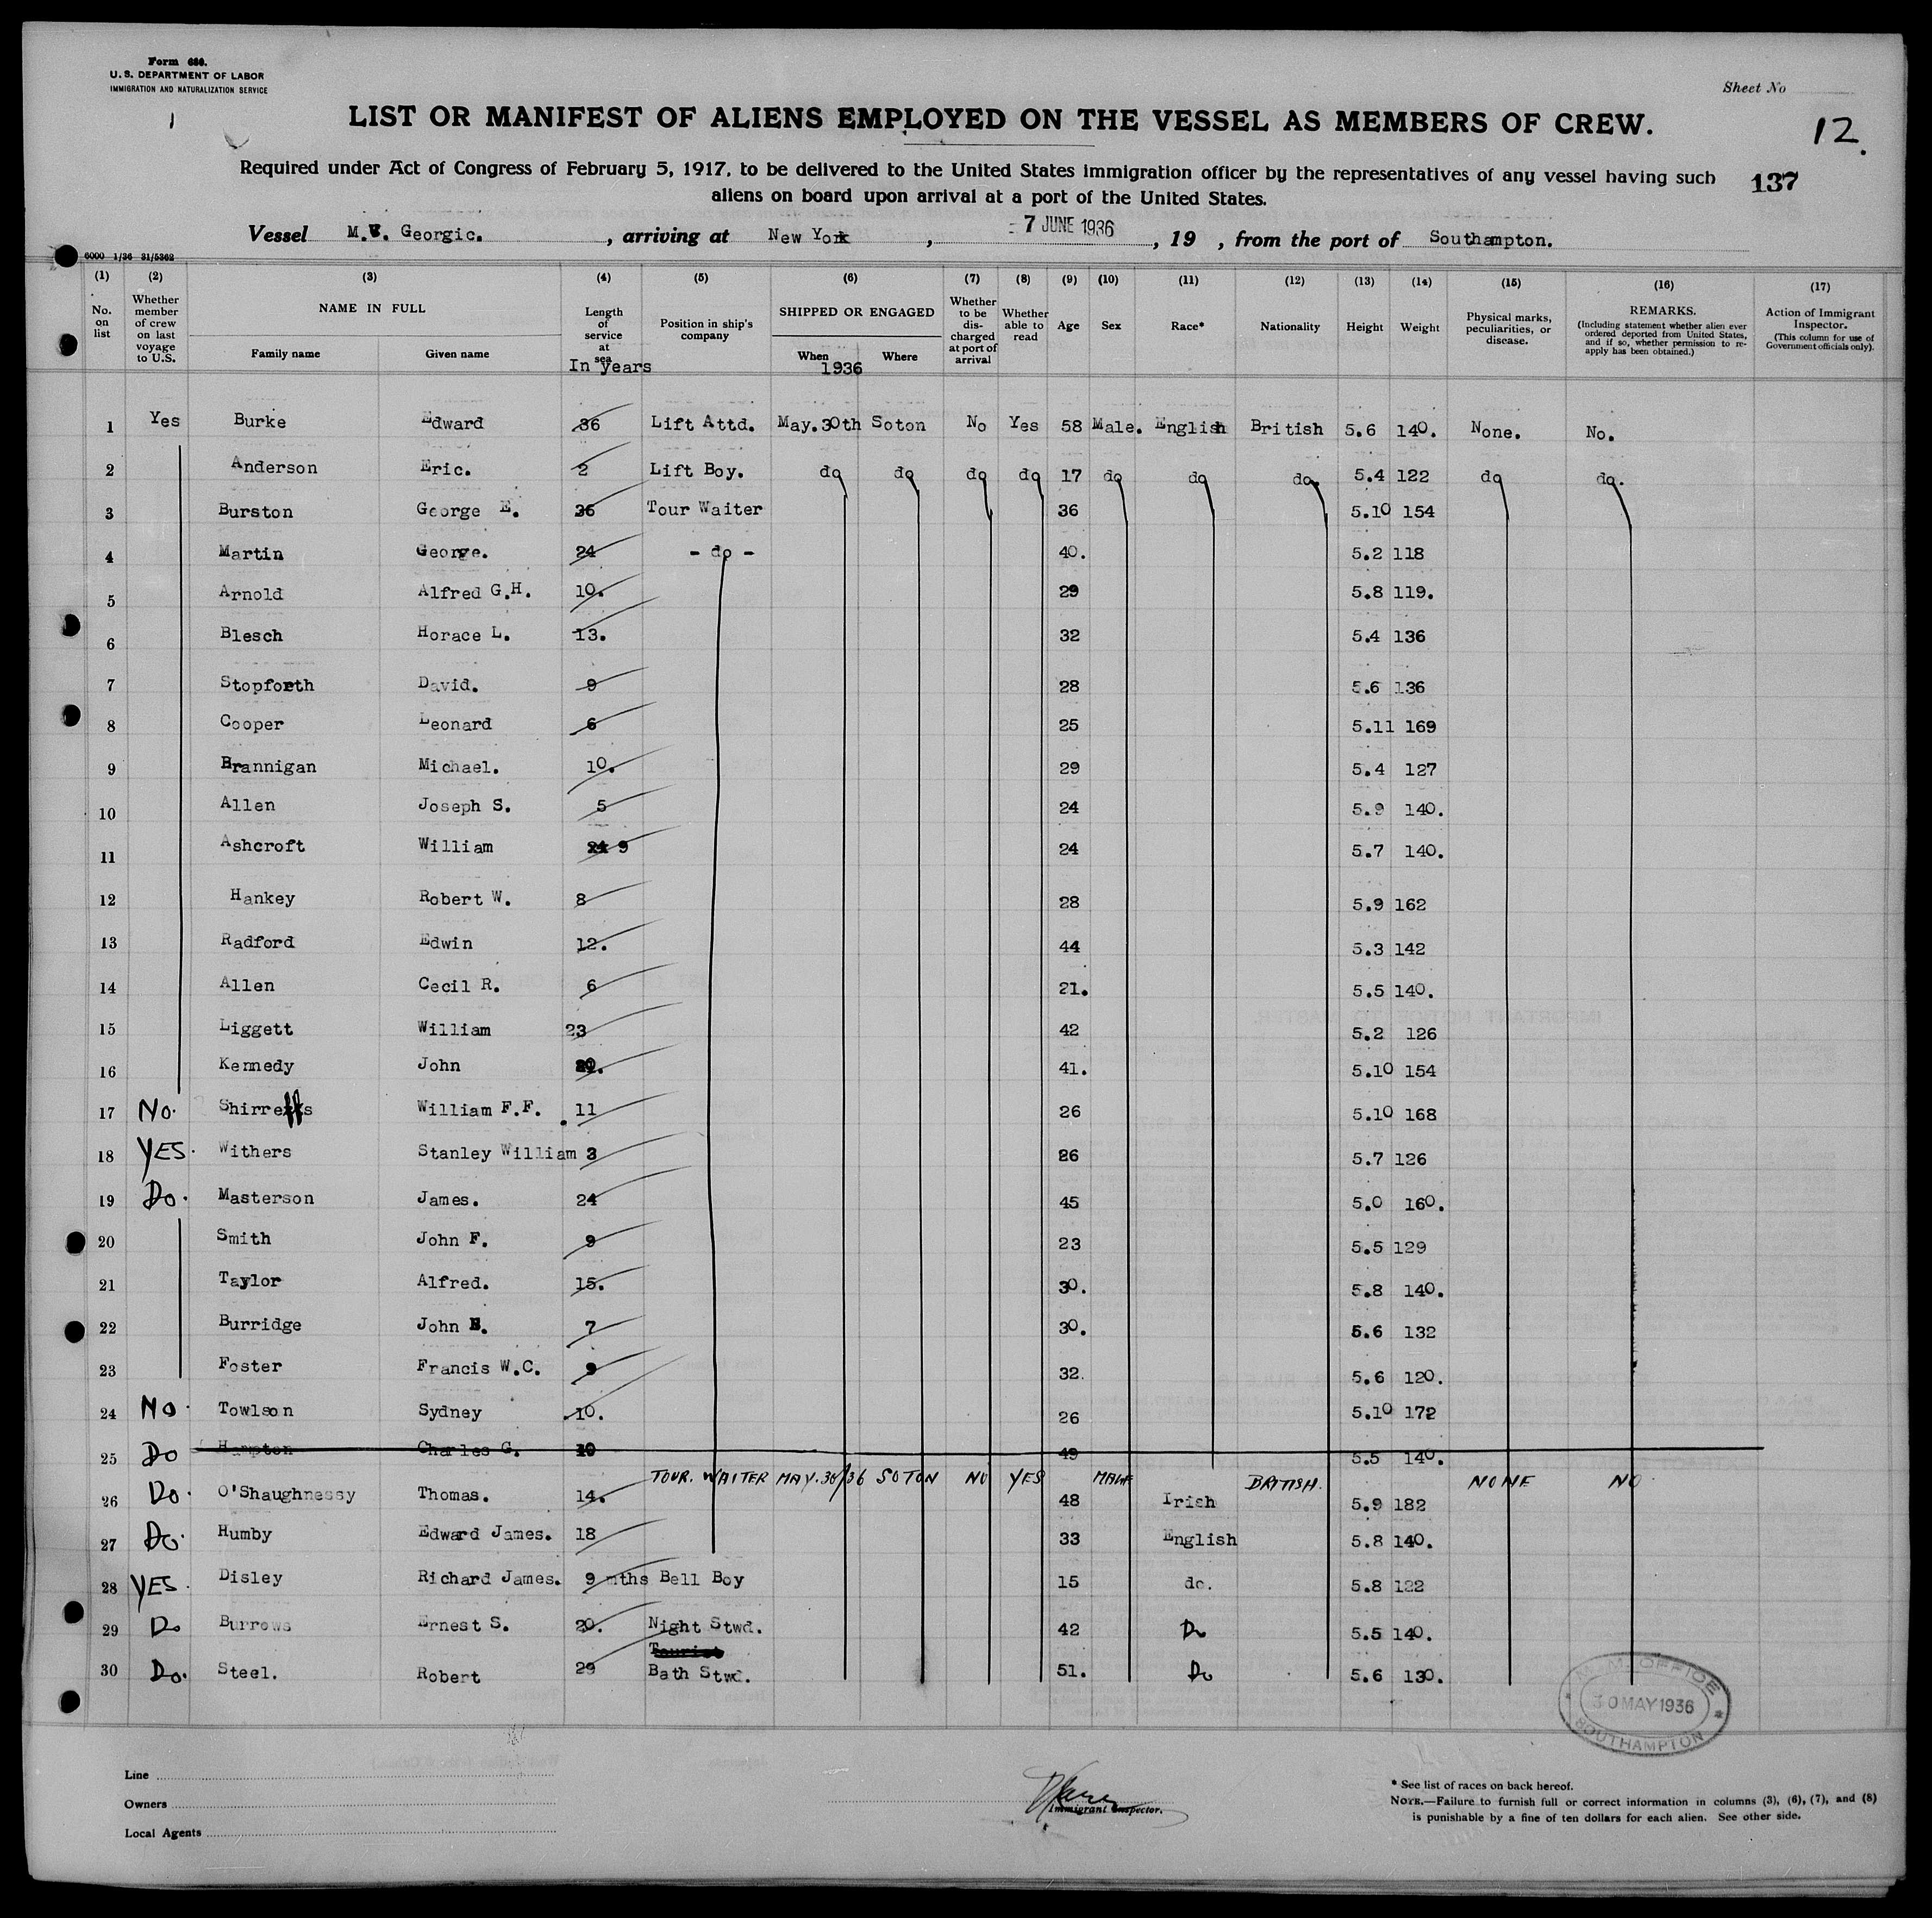 Form 680.
U. S. DEPARTMENT OF LABOR
IMMIGRATION AND NATURALIZATION SERVICE
Sheet No
1
LIST OR MANIFEST OF ALIENS EMPLOYED ON THE VESSEL AS MEMBERS OF CREW.
12.
Required under Act of Congress of February 5, 1917, to be delivered to the United States immigration officer by the representatives of any vessel having such
137
aliens on board upon arrival at a port of the United States.
Vessel M.V. Georgic. , arriving at New York , 7 JUNE 1936 , 19 , from the port of Southampton.
6000 1/36 31/5362
(1) (2) (3) (4) (5) (6) (7) (8) (9) (10) (11) (12) (13) (14) (15) (16) (17)
No. on list
Whether member of crew on last voyage to U.S.
NAME IN FULL
Family name Given name
Length of service at sea
In years
Position in ship's company
SHIPPED OR ENGAGED
When Where
1936
Whether to be discharged at port of arrival
Whether able to read
Age Sex Race* Nationality Height Weight
Physical marks, peculiarities, or disease.
REMARKS.
(Including statement whether alien ever ordered deported from United States, and if so, whether permission to re-apply has been obtained.)
Action of Immigrant Inspector.
(This column for use of Government officials only).
1 Yes Burke Edward 36 Lift Attd. May.30th Soton No Yes 58 Male. English British 5.6 140. None. No.
2 Anderson Eric. 2 Lift Boy. do do do do 17 do do do. 5.4 122 do do.
3 Burston George E. 36 Tour Waiter 36 5.10 154
4 Martin George. 24 - do - 40. 5.2 118
5 Arnold Alfred G.H. 10. 29 5.8 119.
6 Blesch Horace L. 13. 32 5.4 136
7 Stopforth David. 9 28 5.6 136
8 Cooper Leonard 6 25 5.11 169
9 Brannigan Michael. 10. 29 5.4 127
10 Allen Joseph S. 5 24 5.9 140.
11 Ashcroft William 9 24 5.7 140.
12 Hankey Robert W. 8 28 5.9 162
13 Radford Edwin 12. 44 5.3 142
14 Allen Cecil R. 6 21. 5.5 140.
15 Liggett William 23 42 5.2 126
16 Kennedy John 41. 5.10 154
17 No. Shirreffs William F.F. 11 26 5.10 168
18 YES. Withers Stanley William 3 26 5.7 126
19 Do. Masterson James. 24 45 5.0 160.
20 Smith John F. 9 23 5.5 129
21 Taylor Alfred. 15. 30. 5.8 140.
22 Burridge John E. 7 30. 5.6 132
23 Foster Francis W.C. 9 32. 5.6 120.
24 No. Towlson Sydney 10. 26 5.10 172
25 Do Hampton Charles G. 10 49 5.5 140.
TOUR. WAITER MAY.30/36 SOTON NO YES MALE BRITISH. NONE NO
26 Do. O'Shaughnessy Thomas. 14. 48 Irish 5.9 182
27 Do. Humby Edward James. 18 33 English 5.8 140.
28 YES. Disley Richard James. 9 mths Bell Boy 15 do. 5.8 122
29 Do Burrows Ernest S. 20. Night Stwd. 42 Do 5.5 140.
Tourist
30 Do. Steel. Robert 29 Bath Stwd. 51. Do 5.6 130.
M. M. OFFICE
30 MAY 1936
SOUTHAMPTON
Line
Owners
Local Agents
Immigrant Inspector.
* See list of races on back hereof.
NOTE.—Failure to furnish full or correct information in columns (3), (6), (7), and (8)
is punishable by a fine of ten dollars for each alien. See other side.